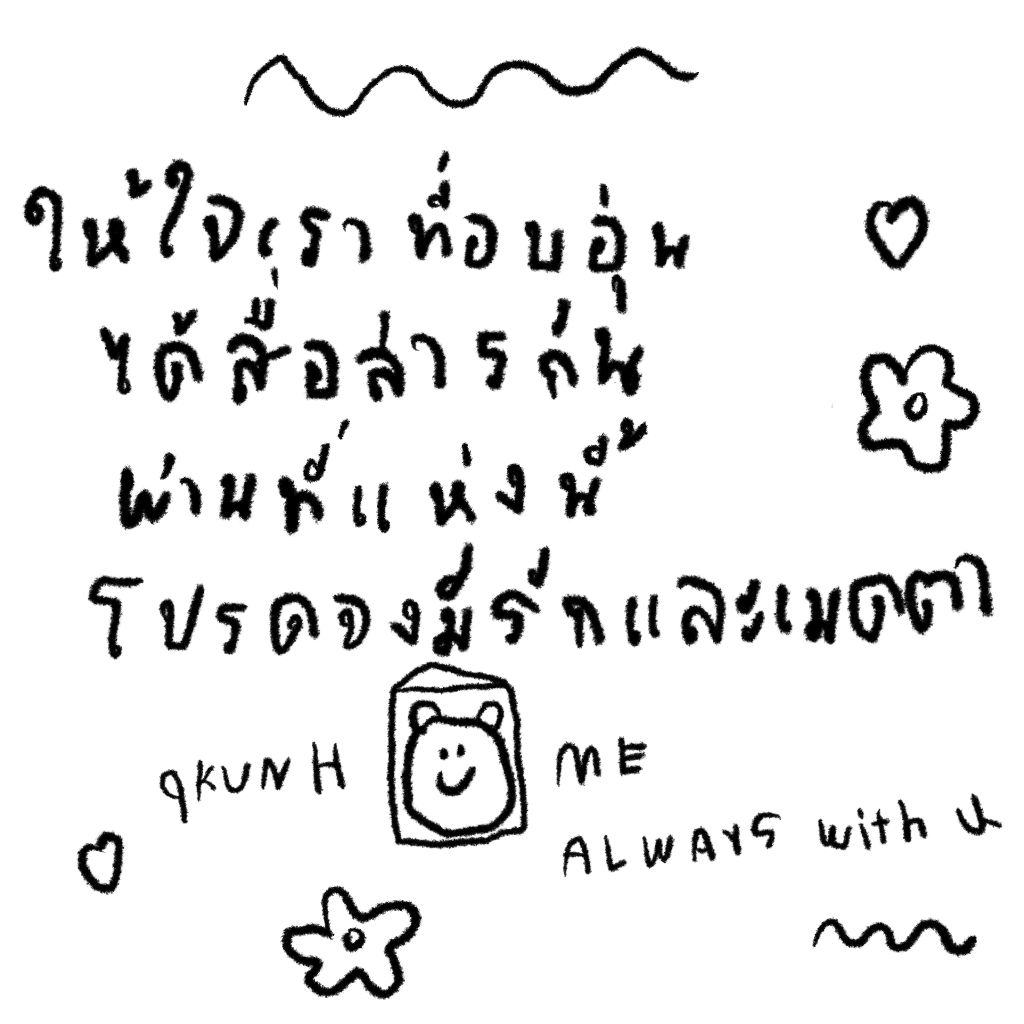 ให้ใจเราที่อบอุ่น
ได้สื่อสารกัน
ผ่านที่แห่งนี้
โปรดจงมีรักและเมตตา
qKUNH ME
ALWAYS with U